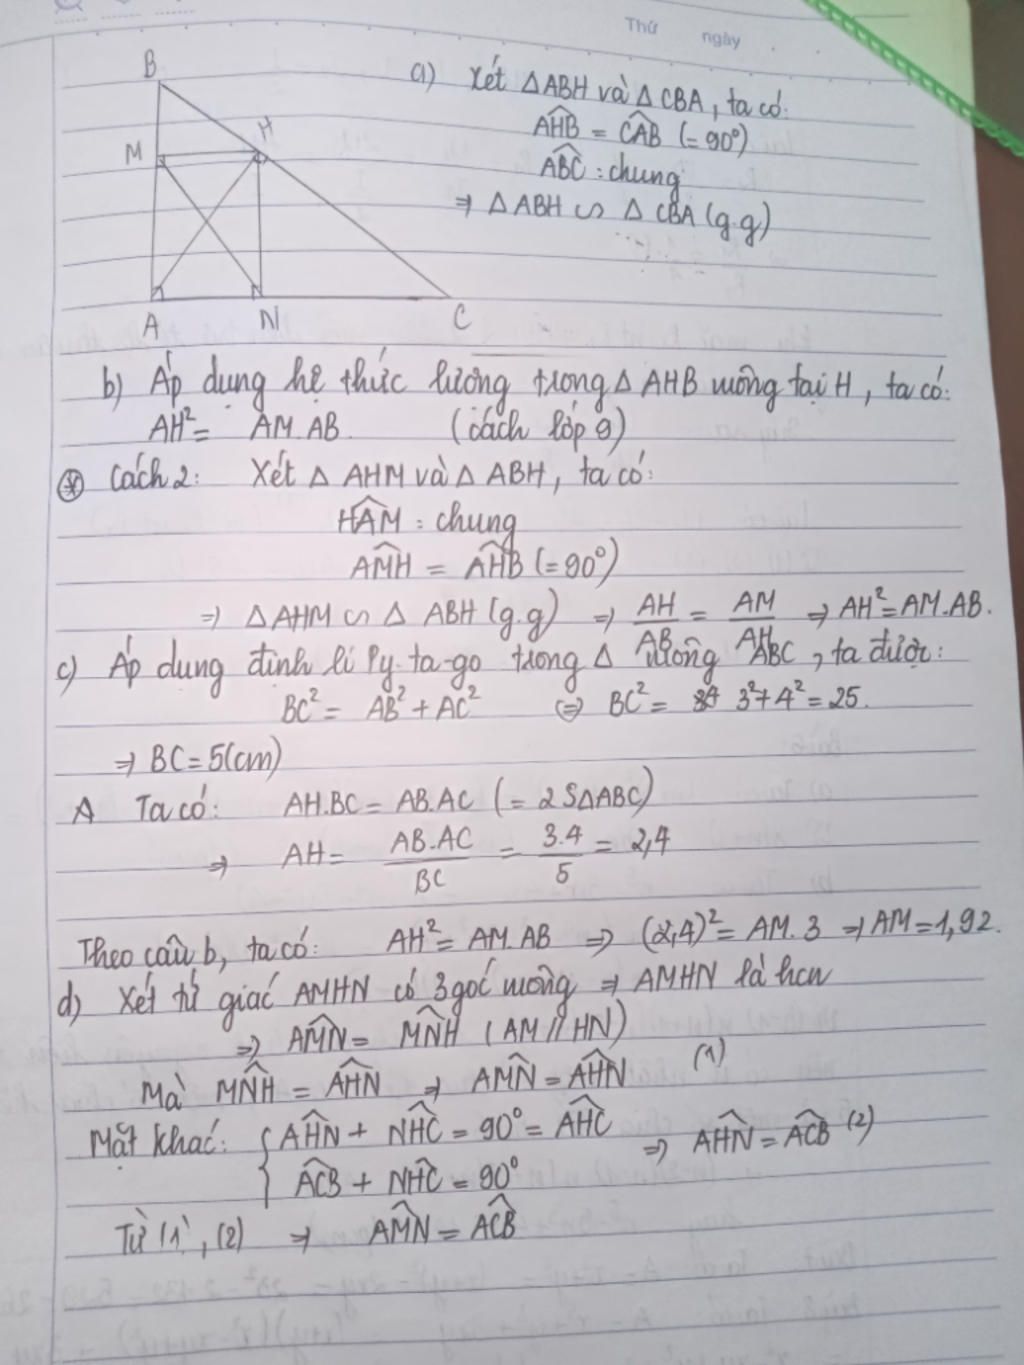 Thứ
ngày
B
H
M
A
N
C
a) Xét △ABH và △CBA, ta có:
AHB = CAB (=90°)
ABC : chung
⇒ △ABH ∽ △CBA (g.g)
b) Áp dụng hệ thức lượng trong △AHB vuông tại H, ta có:
AH² = AM.AB (cách lớp 9)
⊛ Cách 2: Xét △AHM và △ABH, ta có:
HAM : chung
AMH = AHB (=90°)
⇒ △AHM ∽ △ABH (g.g) ⇒ AH/AB = AM/AH ⇒ AH² = AM.AB.
c) Áp dụng định lí Py-ta-go trong △ vuông ABC, ta được:
BC² = AB² + AC² ⇔ BC² = 3² + 4² = 25.
⇒ BC = 5(cm)
A Ta có: AH.BC = AB.AC (= 2S△ABC)
⇒ AH = AB.AC/BC = 3.4/5 = 2,4
Theo câu b, ta có: AH² = AM.AB ⇒ (2,4)² = AM.3 ⇒ AM = 1,92.
d) Xét tứ giác AMHN có 3 góc vuông ⇒ AMHN là hcn
⇒ AMN = MNH (AM // HN)
Mà MNH = AHN ⇒ AMN = AHN (1)
Mặt khác: { AHN + NHC = 90° = AHC
ACB + NHC = 90° ⇒ AHN = ACB (2)
Từ (1), (2) ⇒ AMN = ACB